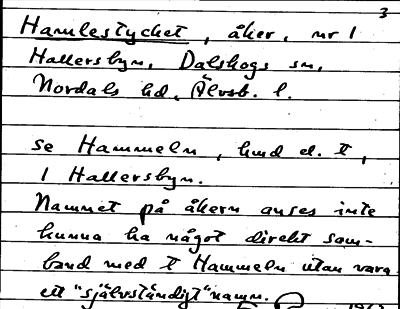 3
Hamlestycket, åker, nr 1
Hallersbyn, Dalskogs sn,
Nordals hd, Älvsb. l.
se Hammeln, hmd el. t,
1 Hallersbyn.
Namnet på åkern anses inte
kunna ha något direkt sam-
band med t Hammeln utan vara
ett "självständigt" namn.